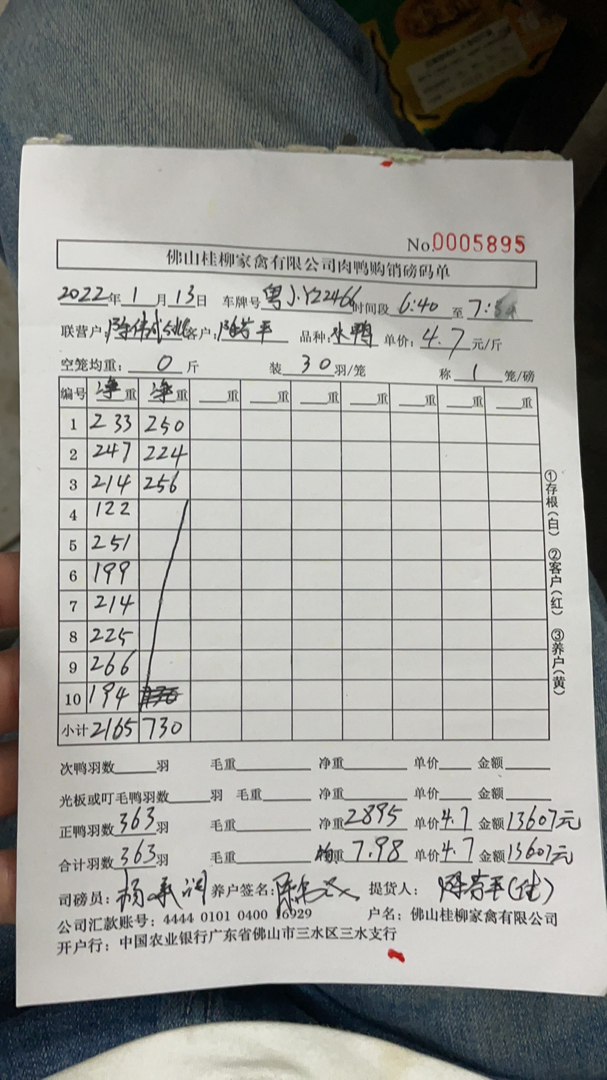 No.0005895
佛山桂柳家禽有限公司肉鸭购销磅码单
2022年1月13日 车牌号 粤J·Y22466 时间段 6:40 至 7:
联营户: 客户: 陈若平 品种: 水鸭 单价: 4.7 元/斤
空笼均重: 0 斤 装 30 羽/笼 称 1 笼/磅
编号 净重 净重 重 重 重 重 重 重 重
1 233 250
2 247 224
3 214 256
4 122
5 251
6 199
7 214
8 225
9 266
10 194
小计 2165 730
①存根(白) ②客户(红) ③养户(黄)
次鸭羽数 羽 毛重 净重 单价 金额
光板或叮毛鸭羽数 羽 毛重 净重 单价 金额
正鸭羽数 363 羽 毛重 净重 2895 单价 4.7 金额 13607元
合计羽数 363 羽 毛重 均重 7.98 单价 4.7 金额 13607元
司磅员: 杨承润 养户签名: 提货人: 陈若平(佳)
公司汇款账号: 4444 0101 0400 16929 户名: 佛山桂柳家禽有限公司
开户行: 中国农业银行广东省佛山市三水区三水支行